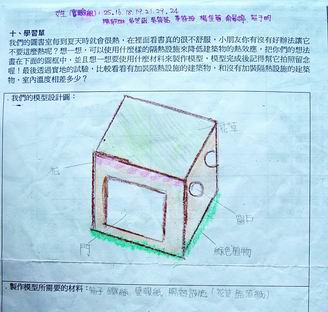 25.16.18.19.21.27.24
十、學習單
我們的圖書室每到夏天時就會很熱，在裡面看書真的很不舒服，小朋友你有沒有好辦法讓它
不要這麼熱呢？想一想，可以使用什麼樣的隔熱設施來降低建築物的熱效應，把你們的想法
畫在下面的圖框中，並且想一想要使用什麼材料來製作模型，模型完成後記得幫它拍照留念
喔！最後透過實地的試驗，比較看看有加裝隔熱設施的建築物，和沒有加裝隔熱設施的建築
物，室內溫度相差多少？
我們的模型設計圖：
花草
窗戶
門
綠色植物
製作模型所需要的材料：